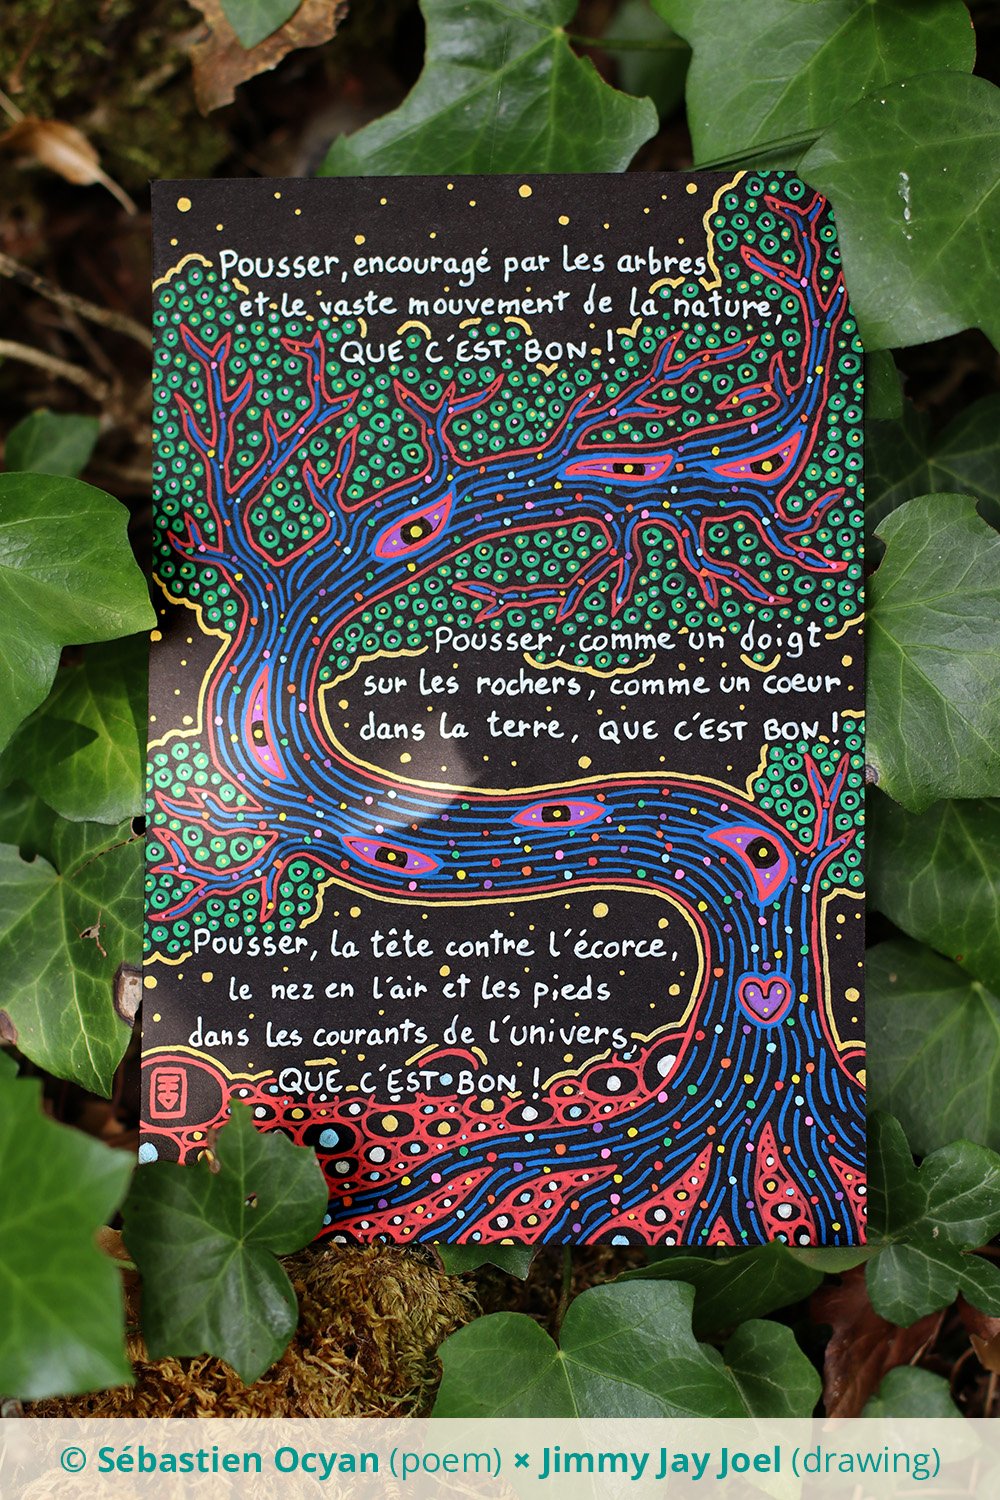 Pousser, encouragé par les arbres
et le vaste mouvement de la nature,
QUE C'EST BON !
Pousser, comme un doigt
sur les rochers, comme un coeur
dans la terre, QUE C'EST BON !
Pousser, la tête contre l'écorce,
le nez en l'air et les pieds
dans les courants de l'univers,
QUE C'EST BON !
© Sébastien Ocyan (poem) × Jimmy Jay Joel (drawing)